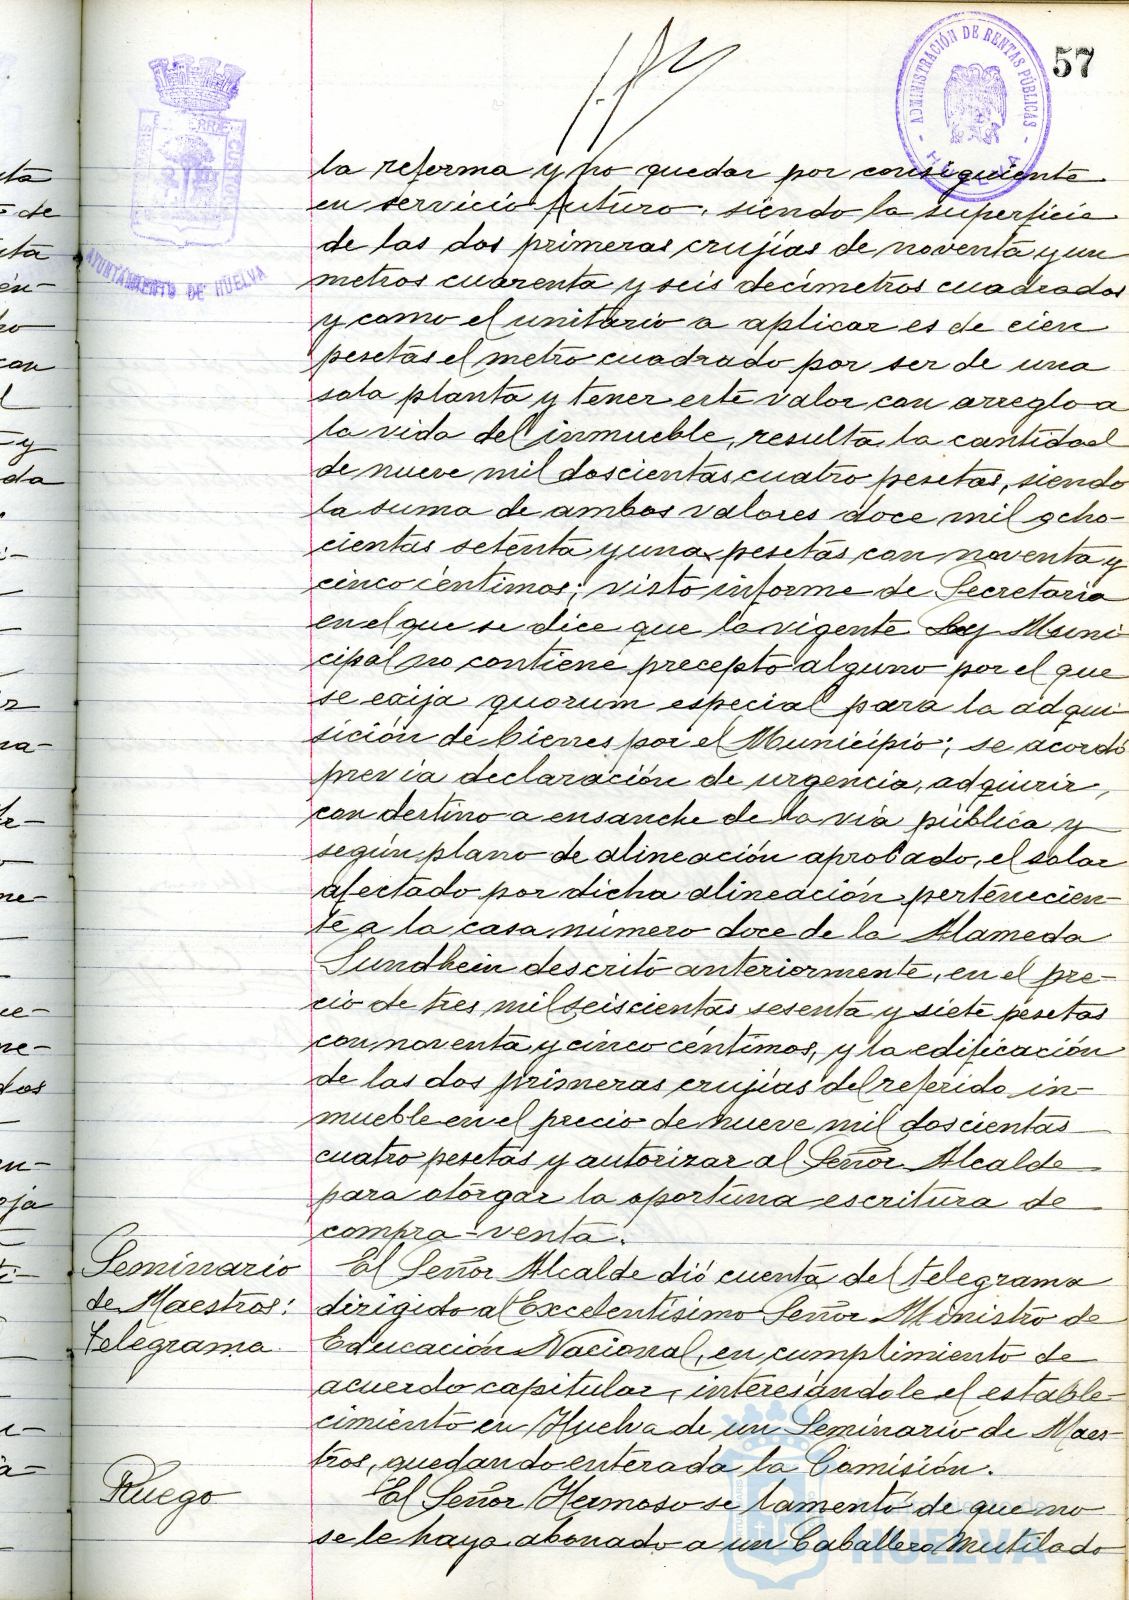 57
ADMINISTRACIÓN DE RENTAS PÚBLICAS
HUELVA
AYUNTAMIENTO DE HUELVA
la reforma y no quedar por consiguiente
en servicio futuro, siendo la superficie
de las dos primeras crujías de noventa y un
metros cuarenta y seis decímetros cuadrados
y como el unitario a aplicar es de cien
pesetas el metro cuadrado por ser de una
sola planta y tener este valor con arreglo a
la vida del inmueble, resulta la cantidad
de nueve mil doscientas cuatro pesetas, siendo
la suma de ambos valores doce mil ocho-
cientas setenta y una pesetas con noventa y
cinco céntimos; visto informe de Secretaria
en el que se dice que la vigente Ley Muni-
cipal no contiene precepto alguno por el que
se exija quorum especial para la adqui-
sición de bienes por el Municipio; se acordó
previa declaración de urgencia, adquirir,
con destino a ensanche de la vía pública y
según plano de alineación aprobado, el solar
afectado por dicha alineación, pertenecien-
te a la casa número doce de la Alameda
Sundhein descrito anteriormente, en el pre-
cio de tres mil seiscientas sesenta y siete pesetas
con noventa y cinco céntimos, y la edificación
de las dos primeras crujías del referido in-
mueble en el precio de nueve mil doscientas
cuatro pesetas y autorizar al Señor Alcalde
para otorgar la oportuna escritura de
compra-venta.
Seminario
de Maestros:
telegrama.
El Señor Alcalde dió cuenta del telegrama
dirigido al Excelentísimo Señor Ministro de
Educación Nacional, en cumplimiento de
acuerdo capitular, interesándole el estable-
cimiento en Huelva de un Seminario de Maes-
tros, quedando enterada la Comisión.
Ruego
El Señor Hermoso se lamentó de que no
se le haya abonado a un Caballero Mutilado
HUELVA